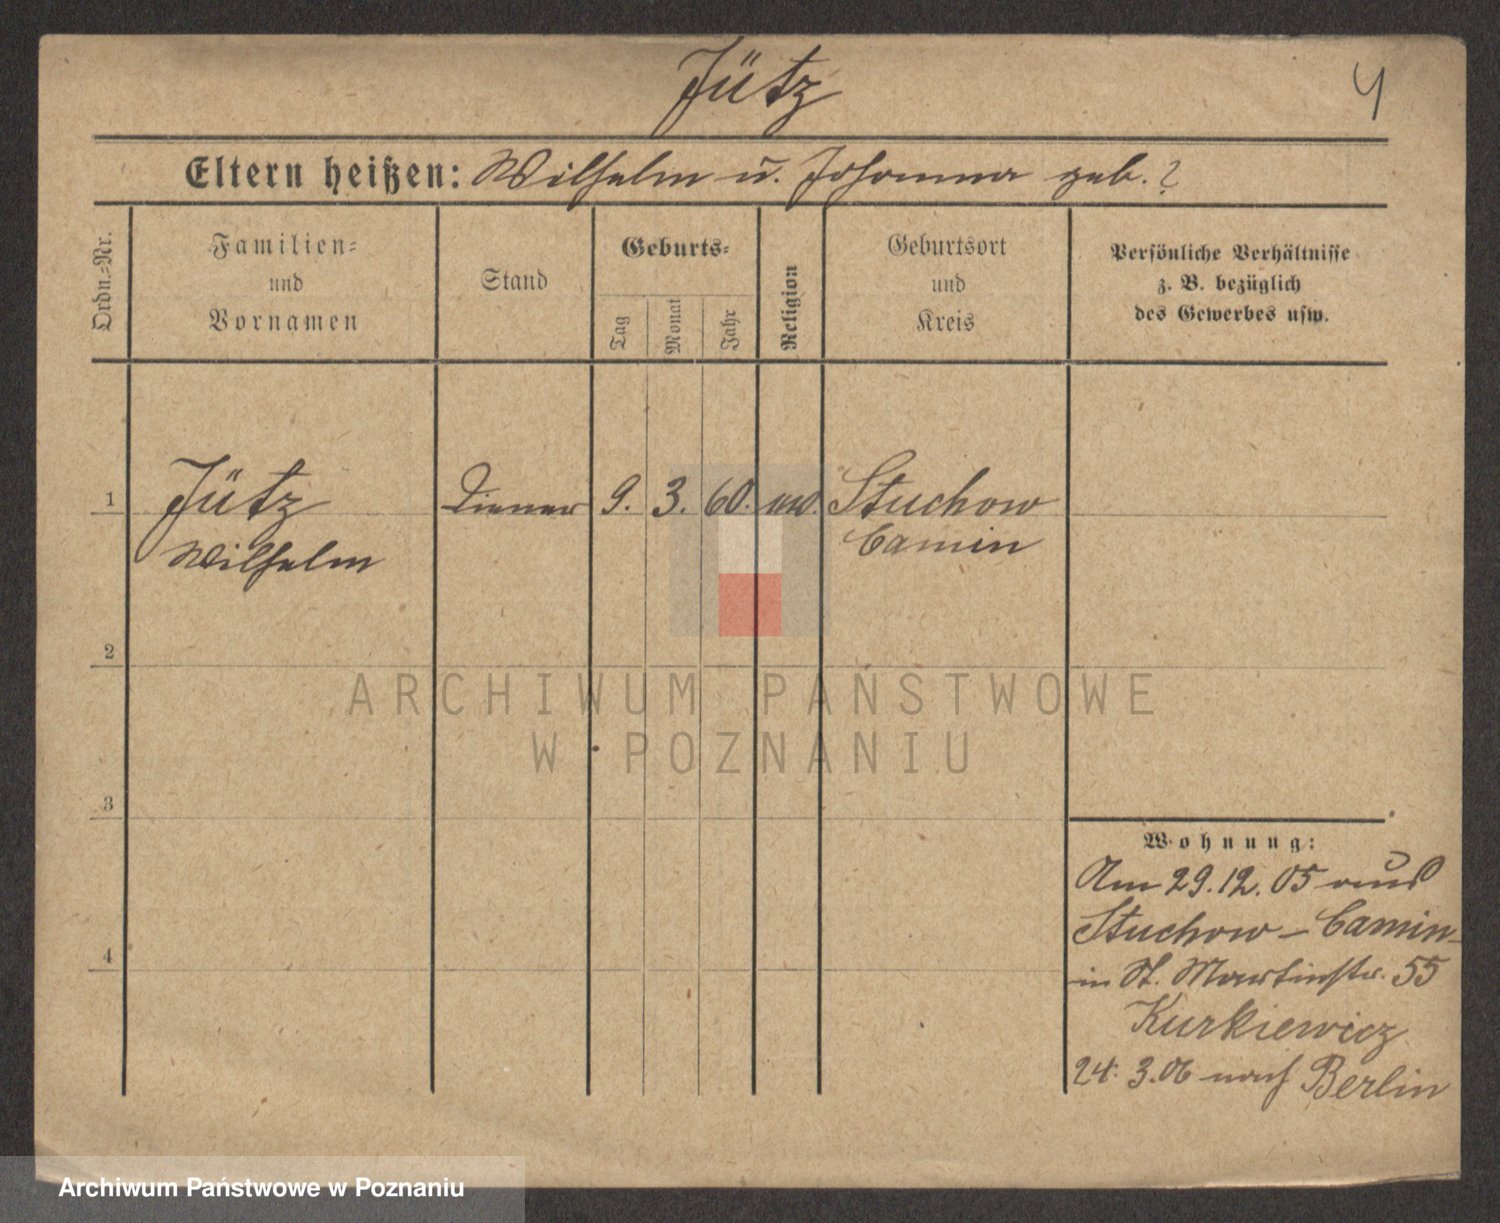 Jütz
4
Eltern heißen: Wilhelm u. Johanna geb. ?
Ordn.-Nr.
Familien-
und
Vornamen
Stand
Geburts-
Tag
Monat
Jahr
Religion
Geburtsort
und
Kreis
Persönliche Verhältnisse
z. B. bezüglich
des Gewerbes usw.
1 Jütz Diener 9. 3. 60. ev. Stuchow
Wilhelm Camin
2
ARCHIWUM PAŃSTWOWE
W POZNANIU
3
Wohnung:
Am 29.12.05 aus
Stuchow – Camin
4
in St. Martinstr. 55
Kurkiewicz
24. 3.06 nach Berlin
Archiwum Państwowe w Poznaniu